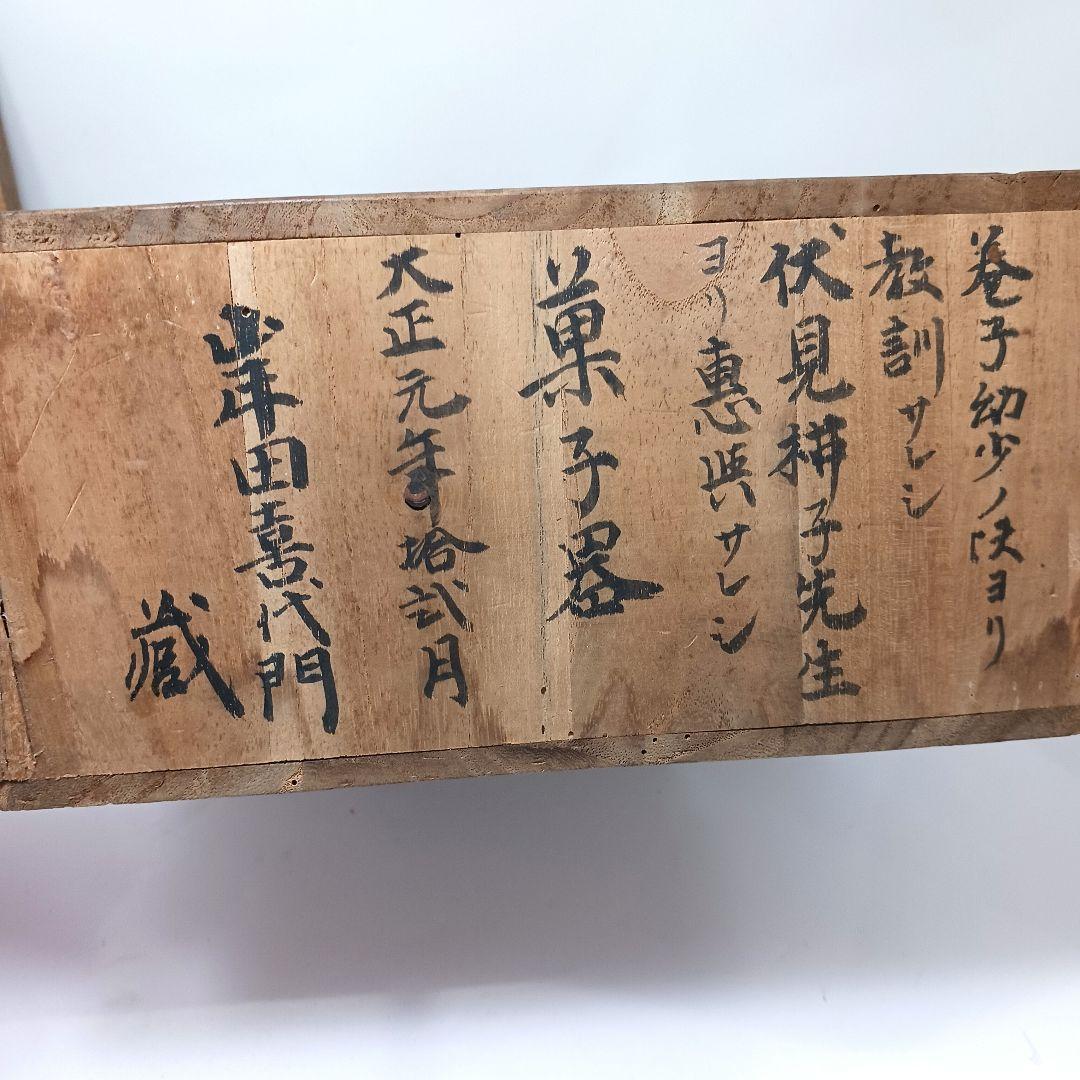 子幼少ノ時ヨリ
教訓サレシ
伏見子先生
ヨリ惠與サレシ
菓子器
大正元年拾弐月
岸田喜代門
藏